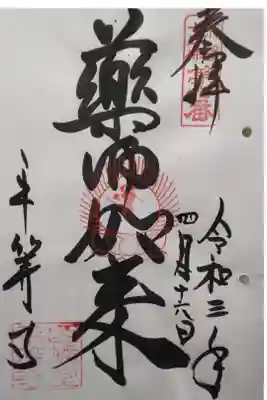 奉拝
令和三年
四月十六日
藥師如来
平等寺